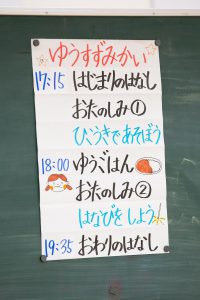 ゆうすずみかい
17:15 はじまりのはなし
おたのしみ①
ひこうきであそぼう
18:00 ゆうごはん
おたのしみ②
はなびをしよう
19:35 おわりのはなし